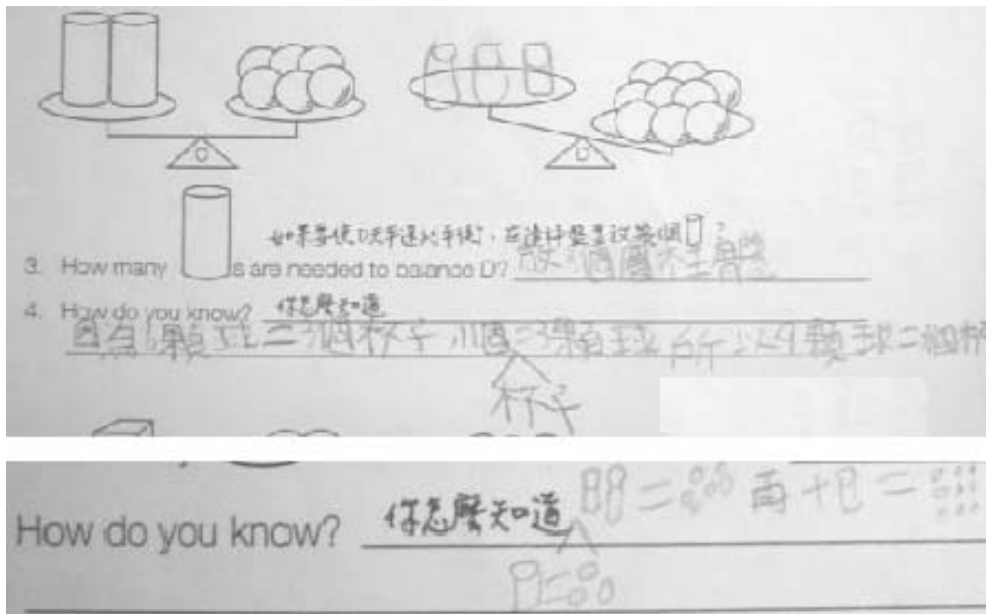 C
D
如果要使D天平達到平衡，在這時盤里放幾個 ?
3. How many s are needed to balance D? 放3個圓柱體
4. How do you know? 你怎麼知道
因為6顆球=2個杯子,1個=3顆球 所以9顆球=3個杯
杯子
How do you know? 你怎麼知道 再+ =
=